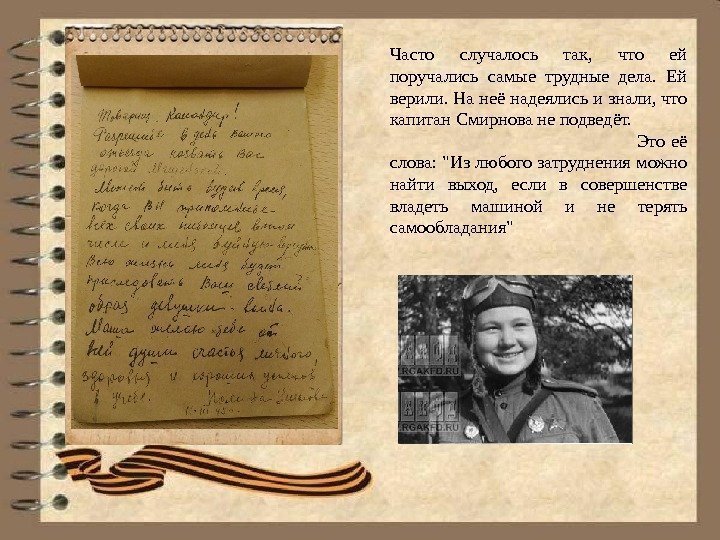 Товарищ Командир!
Разрешите в день Вашего
отъезда назвать Вас
дорогой Машенькой.
Может быть будет время,
когда Вы припомните
всех своих питомцев, в том
числе и меня
Всю жизнь меня будет
преследовать Ваш светлый
образ девушки-воина.
Маша желаю тебе от
всей души счастья личного,
здоровья и хороших успехов
в учебе.
Часто случалось так, что ей
поручались самые трудные дела. Ей
верили. На неё надеялись и знали, что
капитан Смирнова не подведёт.
Это её
слова: "Из любого затруднения можно
найти выход, если в совершенстве
владеть машиной и не терять
самообладания"
RGAKFD.RU
RGAKFD.RU